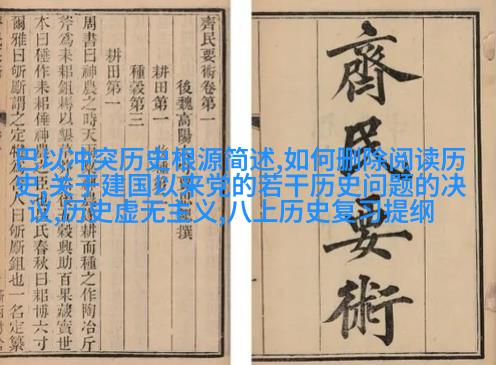 齊民要術
齊民要術卷第一
後魏高陽
撰
耕田第一
種穀第三
耕田第一
周書曰神農之時天
耕而種之作陶冶斤
斧爲耒耜鉏耨以墾
穀興助百果藏實世
本曰倕作耒耜倕神農之臣也
氏春秋曰耜博六寸
爾雅曰斪斸謂之定
人曰斪斸鉏也一名定纂
巴以冲突历史根源简述,如何删除阅读历
史,关于建国以来党的若干历史问题的决
议,历史虚无主义,八上历史复习提纲